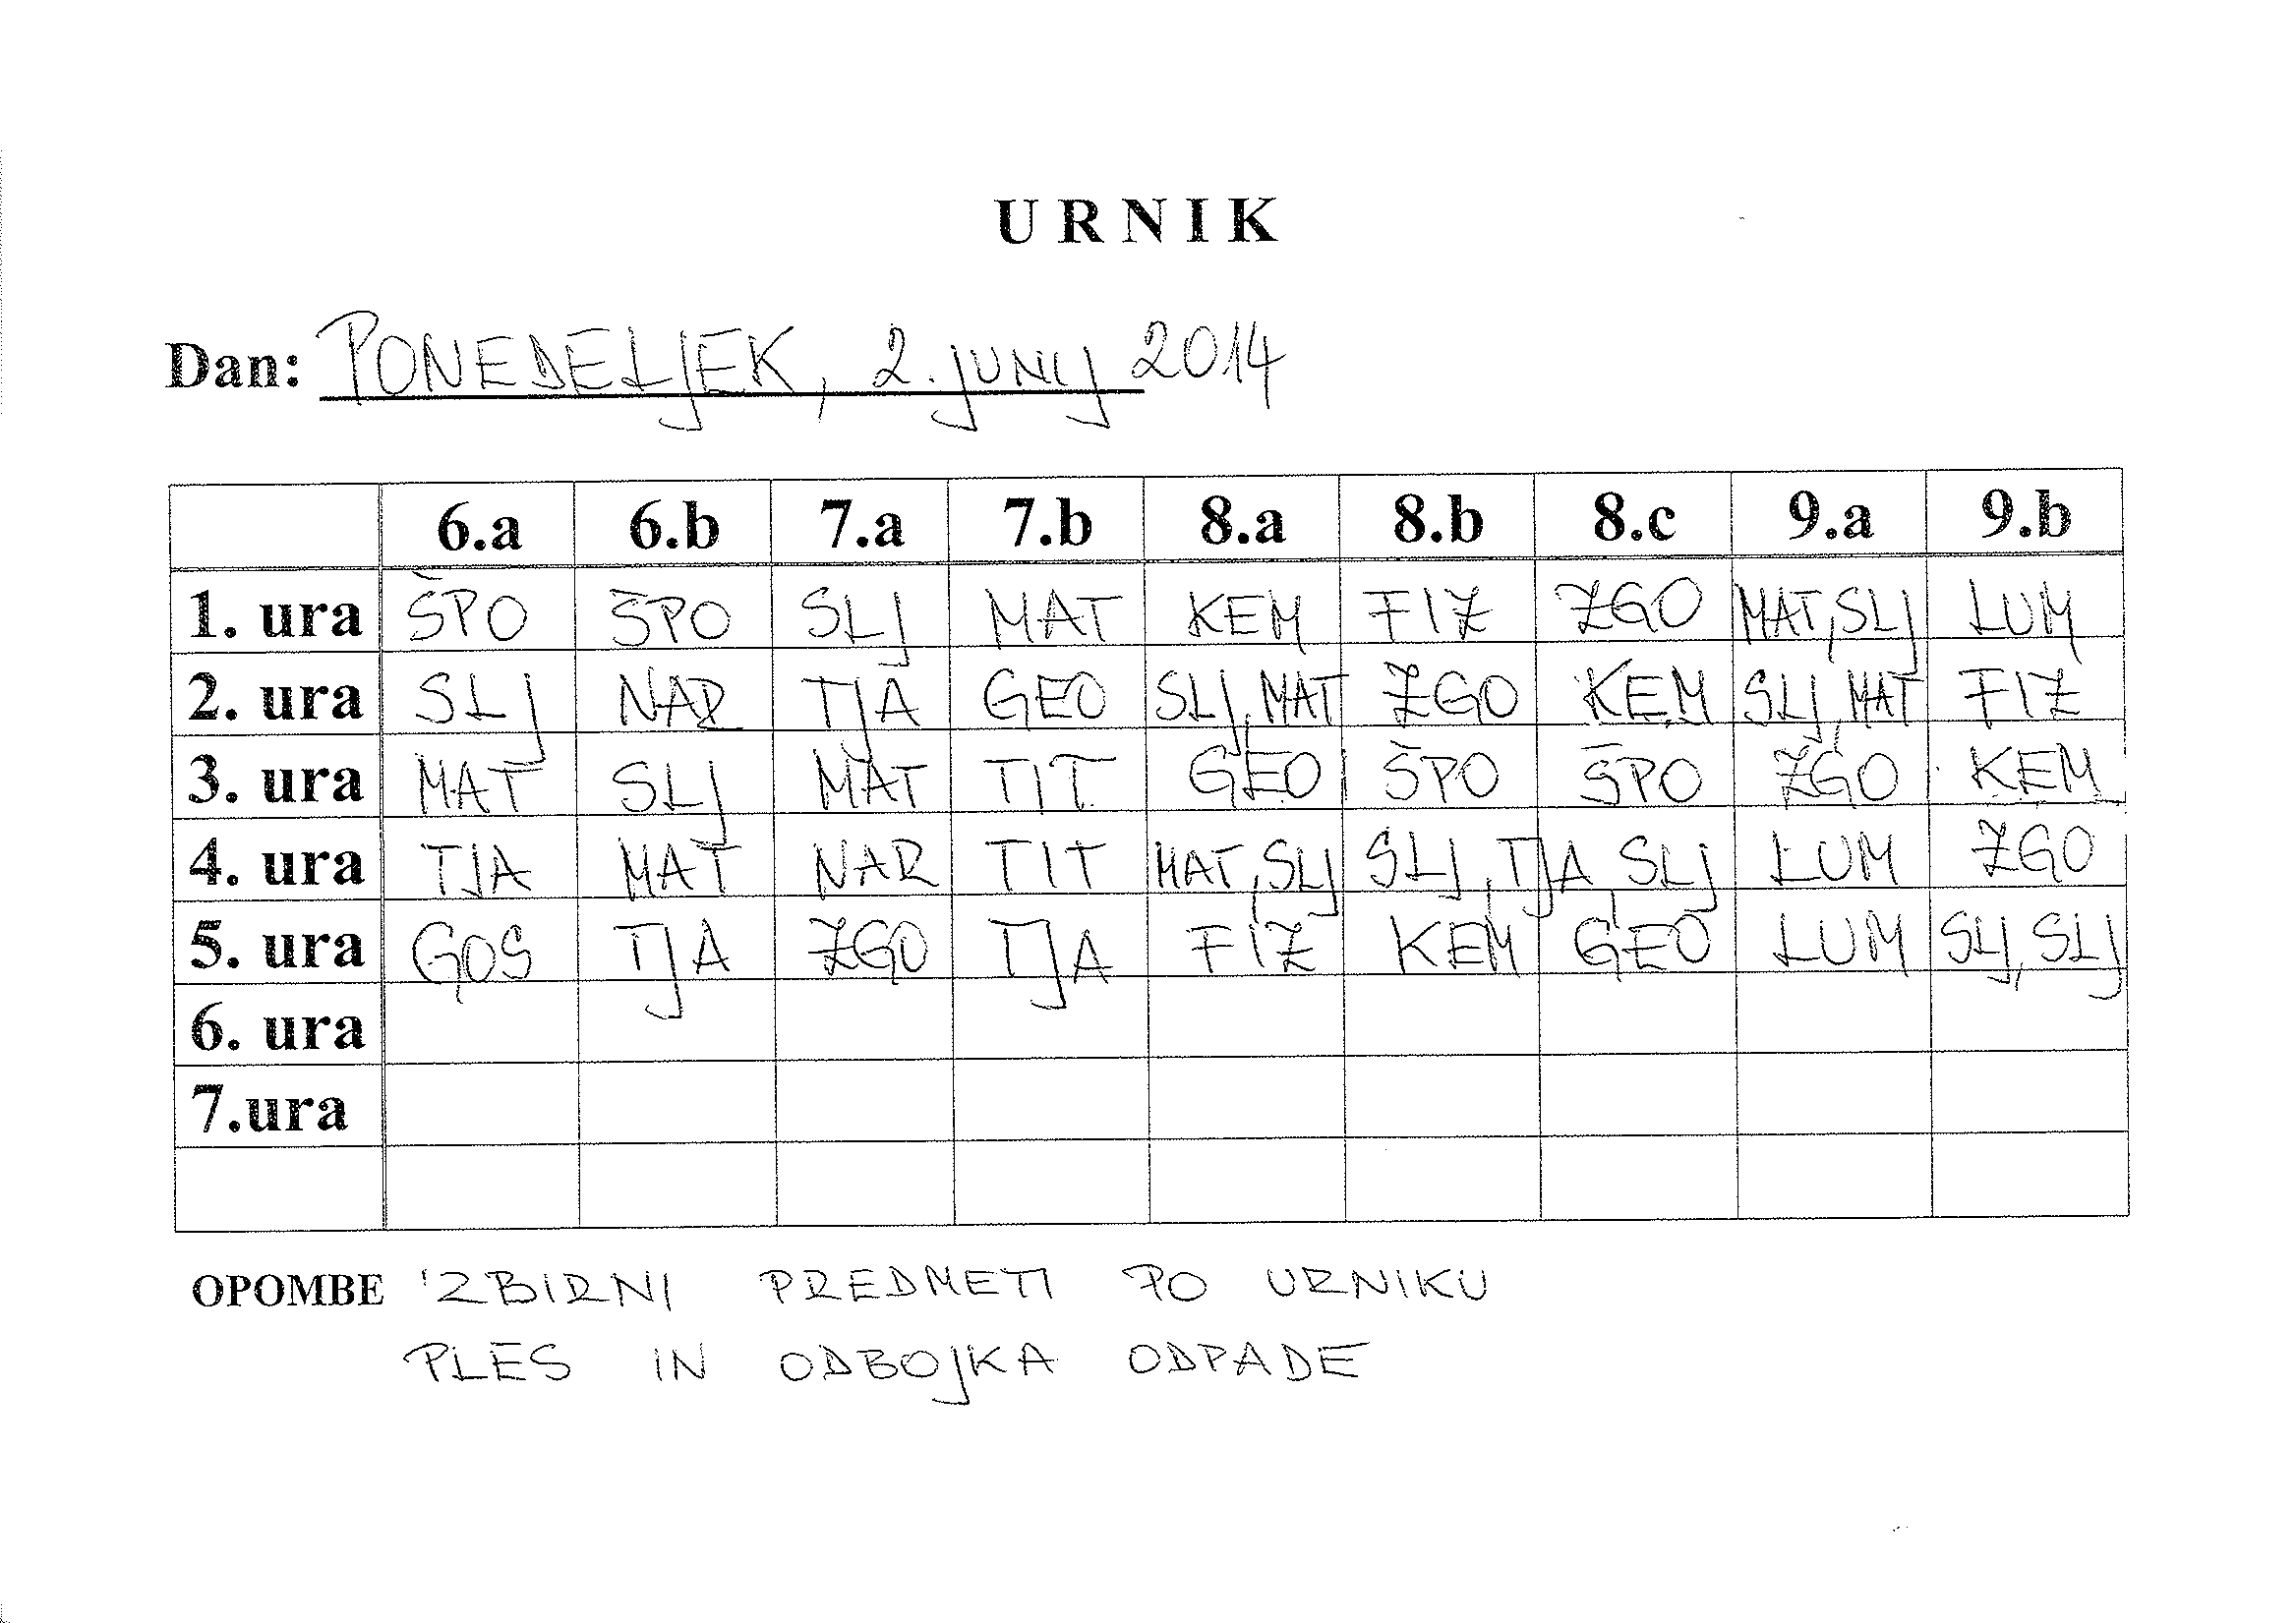 URNIK
Dan: PONEDELJEK, 2. junij 2014
6.a 6.b 7.a 7.b 8.a 8.b 8.c 9.a 9.b
1. ura ŠPO ŠPO SLJ MAT KEM FIZ ZGO MAT,SLJ LUM
2. ura SLJ NAR TJA GEO SLJ,MAT ZGO KEM SLJ,MAT FIZ
3. ura MAT SLJ MAT TIT GEO ŠPO ŠPO ZGO KEM
4. ura TJA MAT NAR TIT MAT,SLJ SLJ,TJA,SLJ LUM ZGO
5. ura GOS TJA ZGO TJA FIZ KEM GEO LUM SLJ,SLJ
6. ura
7.ura
OPOMBE IZBIRNI PREDMETI PO URNIKU
PLES IN ODBOJKA ODPADE